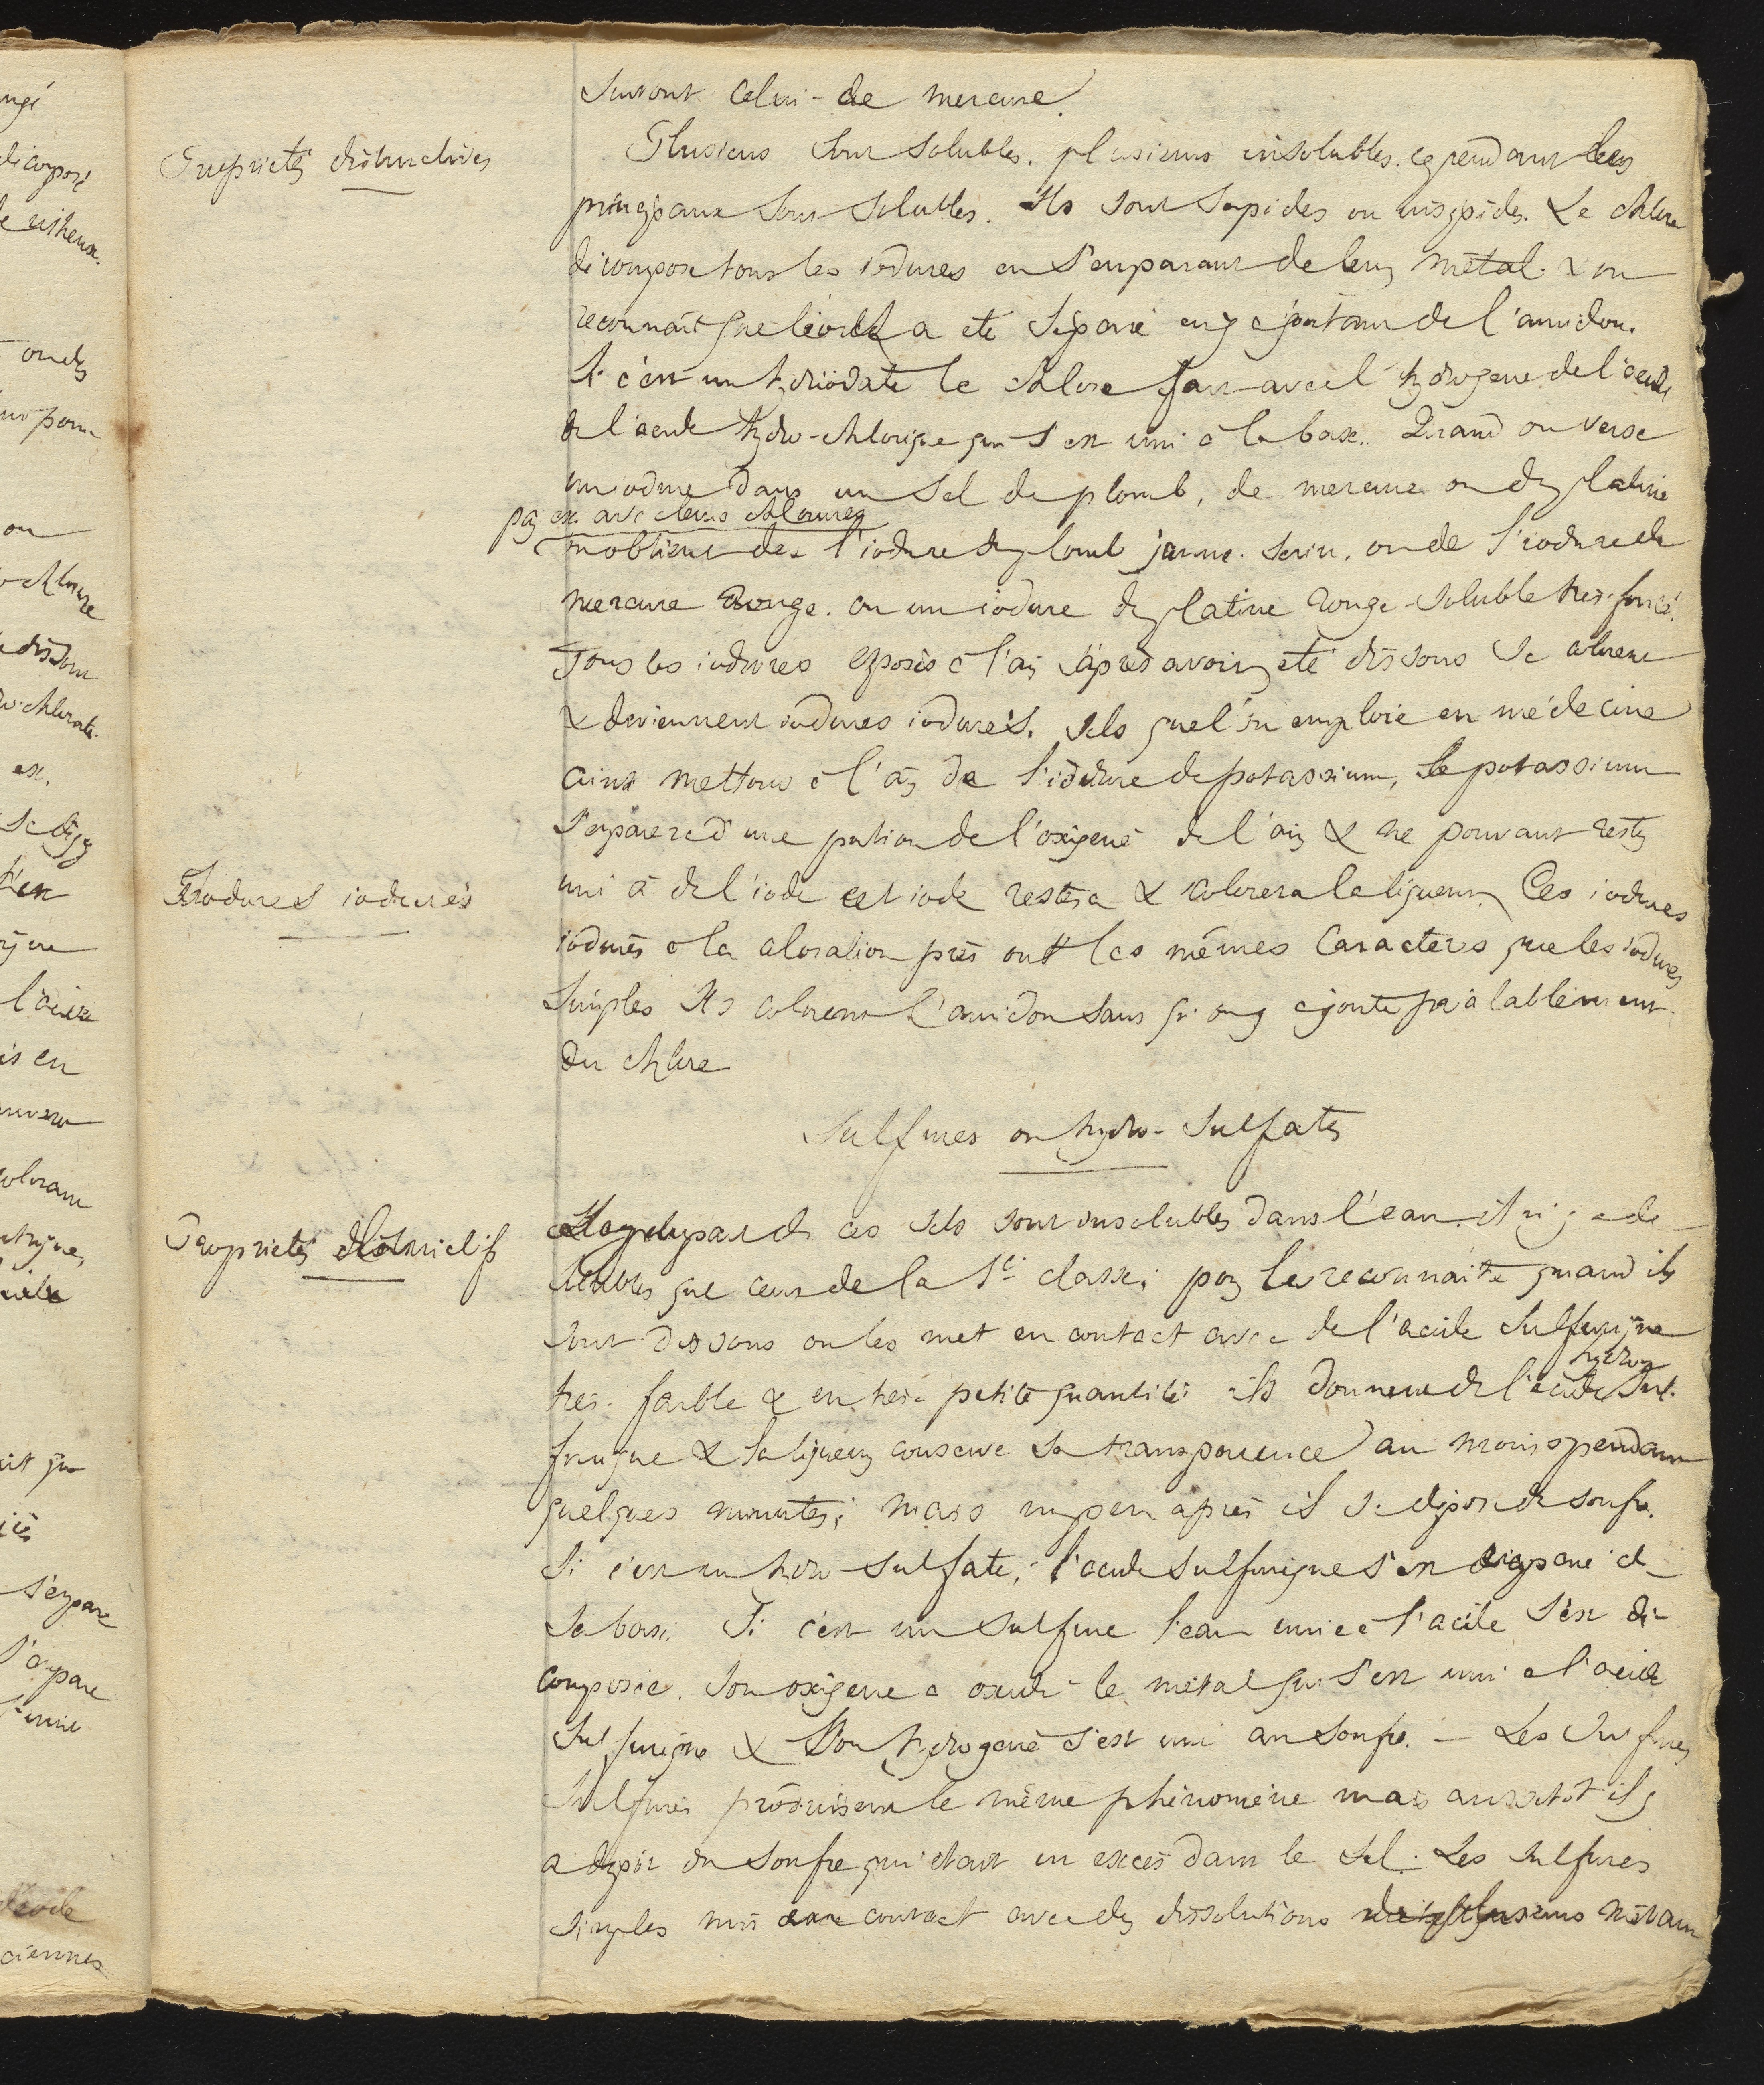 Surtout celui-de mercure.
Propriétés distinctives
Plusieurs sont solubles. plusieurs insolubles. cependant les
principaux sont solubles. Ils sont sapides ou insipides. Le chlore
décompose tous les iodures en s'emparant de leur métal. & on
reconnaît que l'iode a été séparé en y ajoutant de l'amidon.
Si c'est un hydriodate le chlore fait avec l'hydrogene de l'acide
de l'acide hydro-chlorique qui s'est uni à la base. Quand on verse
un iodure dans un sel de plomb, de mercure ou de platine
par ex. avec chlorures
on obtient de l'iodure de plomb jaune. serin, ou de l'iodure de
mercure rouge. ou un iodure de platine rouge-soluble très-foncé.
Tous les iodures exposés à l'air après avoir été dissous se colorent
& deviennent iodures iodurés. Sels que l'on emploie en médecine
ainsi mettons à l'air de l'iodure de potassium, le potassium
s'emparera d'une portion de l'oxigène de l'air & ne pouvant rester
uni à de l'iode cet iode restera & colorera la liqueur. Ces iodures
Iodures iodurés
iodurés à la coloration près ont les mêmes Caracteres que les iodures
simples Ils colorent l'amidon sans qu'on y ajoute préalablement
du chlore
Sulfures ou hydro-sulfates
Propriétés distinctif
La plupart de ces sels sont insolubles dans l'eau. il n'y a de
solubles que ceux de la 1e classe; pour les reconnaitre quand ils
sont dissous on les met en contact avec de l'acide sulfurique
très-faible & en très-petite quantité ils donnent de l'acide hydro sul-
furique & la liqueur conserve sa transparence au moins pendant
quelques minutes; mais un peu après il se dépose du soufre.
Si c'est un hydro-sulfate, l'acide sulfurique s'est emparé de
sa base. Si c'est un sulfure l'eau unie à l'acide s'est dé-
composée. Son oxigene a oxidé le métal qui s'est uni à l'acide
sulfurique & Son hydrogene s'est uni au soufre. — Les Sulfures
sulfurés produisent le même phénomène mais aussitot il y
a dépôt du soufre qui était en excès dans le sel. Les sulfures
simples mis en contact avec des dissolutions métall